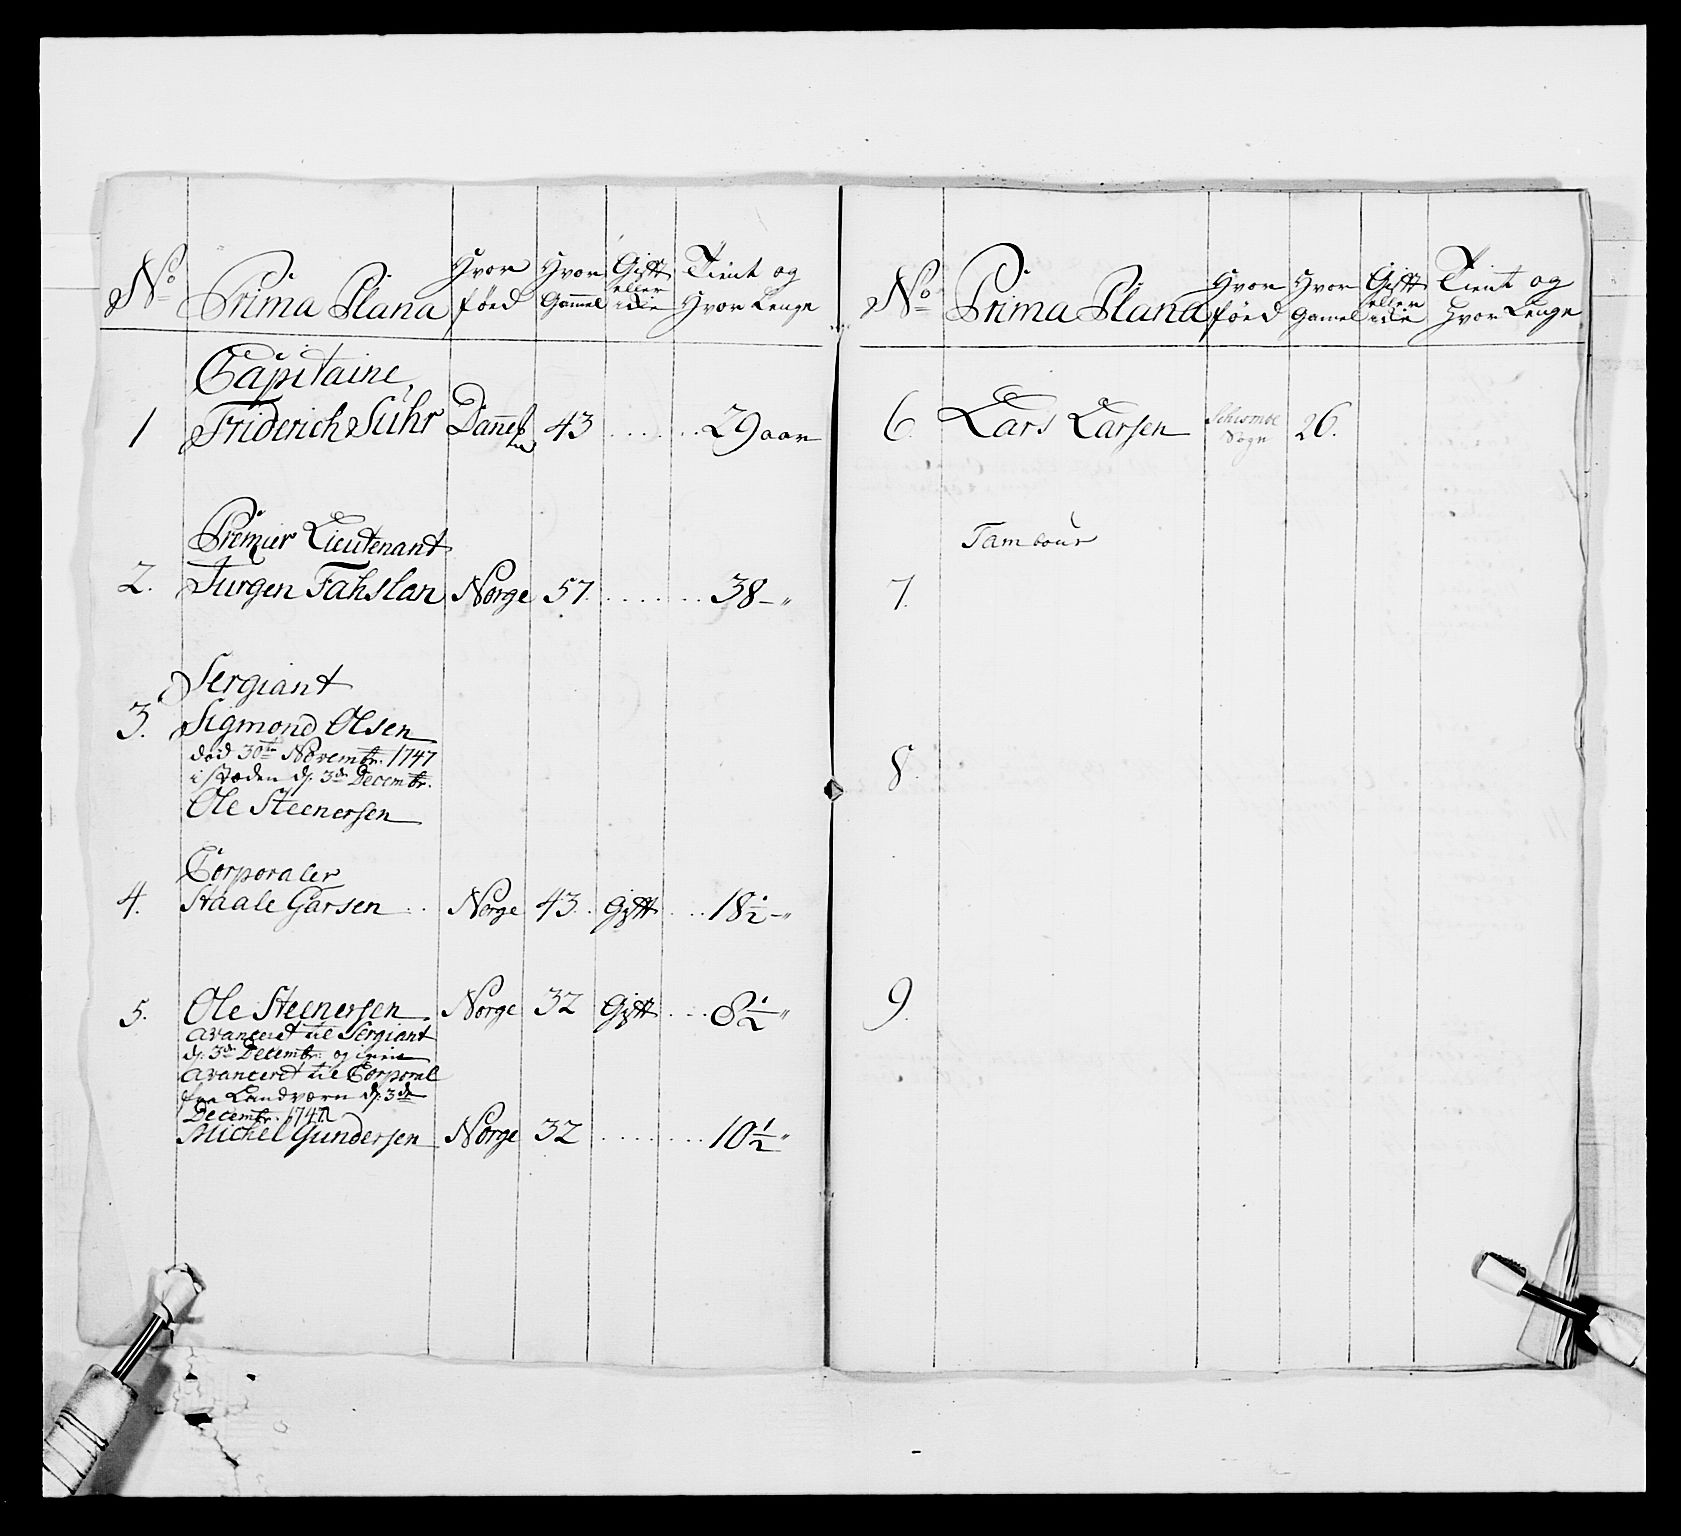 No Prima Plana Hvor föed Hvor Gammel Gift eller icke Tient og Hvor Lenge
Capitaine
1 Friderich Suhr 43 29 aar
Premier Lieutenant
2. Jurgen Fahslan Norge 57 38 - "
Sergiant
3. Sigmond Olsen
död 30te Novembr. 1747
i støden d. 3de Decembr.
Ole Steenersen
Corporaler
4. Staale Garsen Norge 43 Gift 18 1/2 - "
5. Ole Steenersen Norge 32 Gift 8 1/2 "
avanceret til Sergiant
d. 3de Decembr. og igien
avanceret til Corporal
fra Landværn d. 3de
Decembr. 1747
Michel Gundersen Norge 32 10 1/2 "
No Prima Plana Hvor föed Hvor Gamel Gift eller icke Tient og Hvor Lenge
6. Lars Larsen Sogn 26.
Tambour
7.
8.
9.